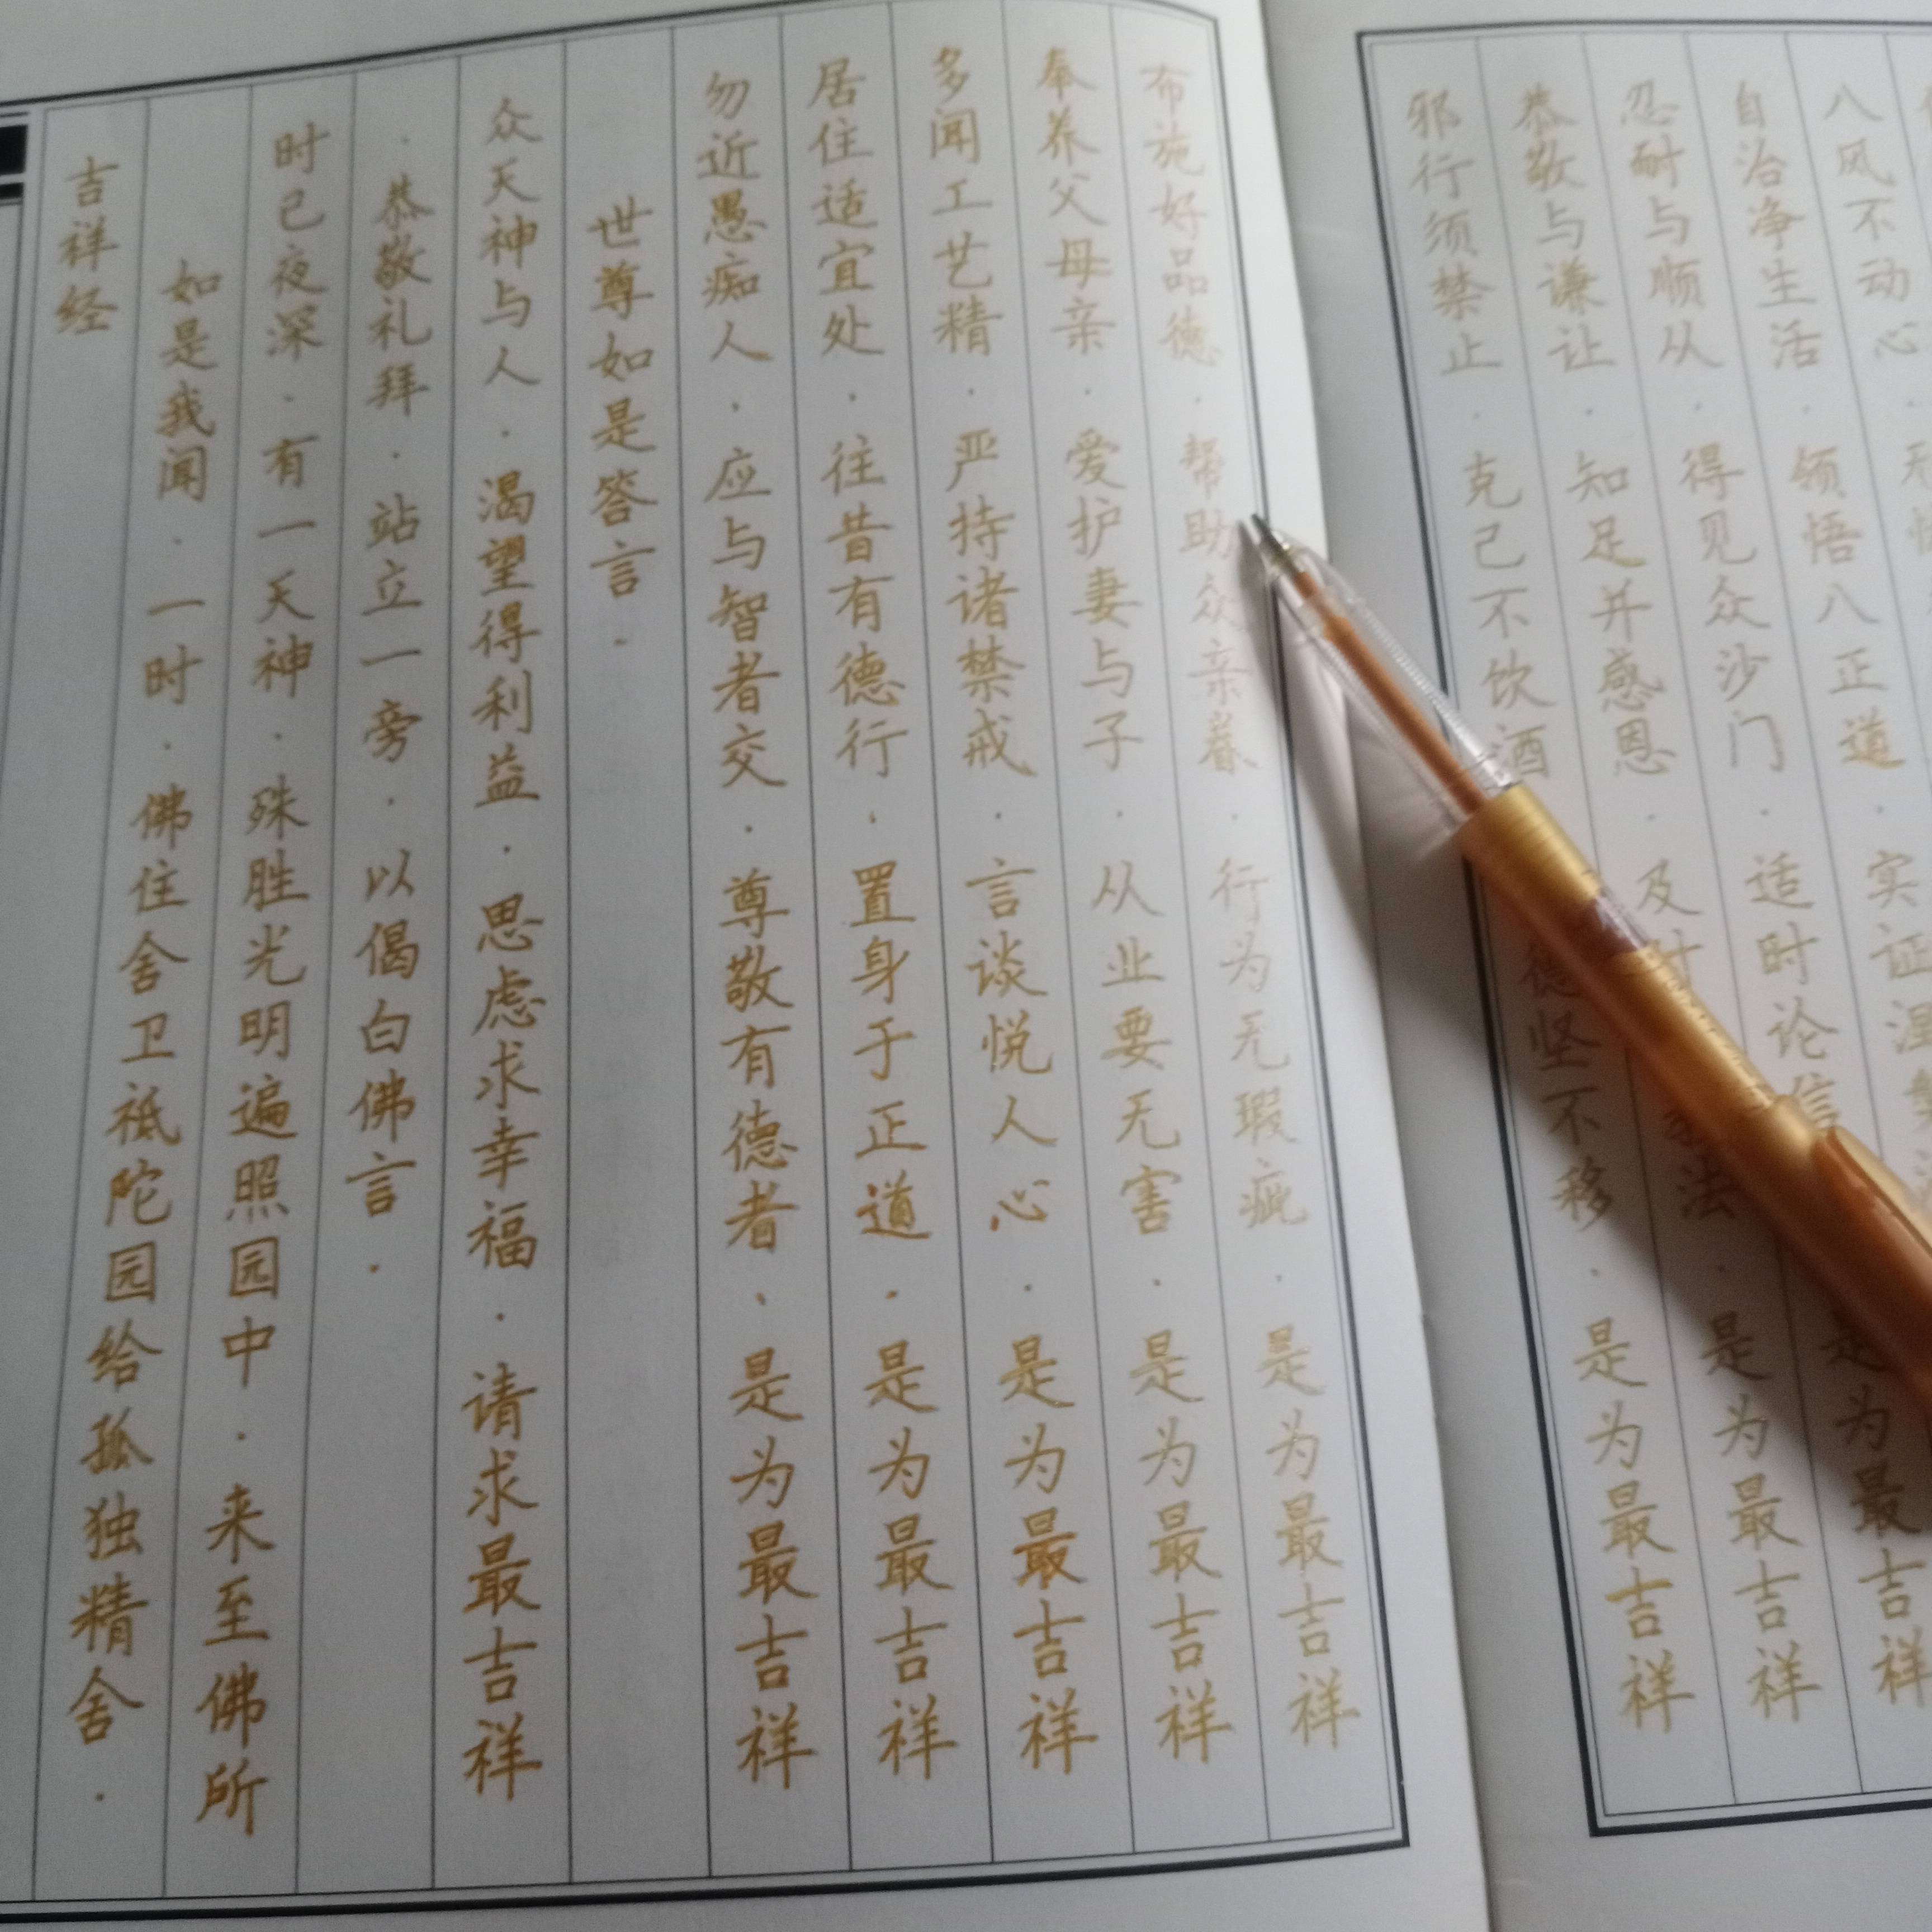 吉祥经
如是我闻．一时．佛住舍卫祗陀园给孤独精舍．
时己夜深．有一天神．殊胜光明遍照园中．来至佛所
．恭敬礼拜．站立一旁．以偈白佛言．
众天神与人．渴望得利益．思虑求幸福．请求最吉祥
世尊如是答言．
勿近愚痴人．应与智者交．尊敬有德者、是为最吉祥
居住适宜处．往昔有德行．置身于正道．是为最吉祥
多闻工艺精．严持诸禁戒．言谈悦人心．是为最吉祥
奉养父母亲．爱护妻与子．从业要无害．是为最吉祥
布施好品德．帮助众亲眷．行为无瑕疵．是为最吉祥
邪行须禁止．克己不饮酒 德坚不移．是为最吉祥
恭敬与谦让．知足并感恩．及时 法．是为最吉祥
忍耐与顺从．得见众沙门．适时论信 是为最吉祥
自治净生活．领悟八正道．实证涅
八风不动心．